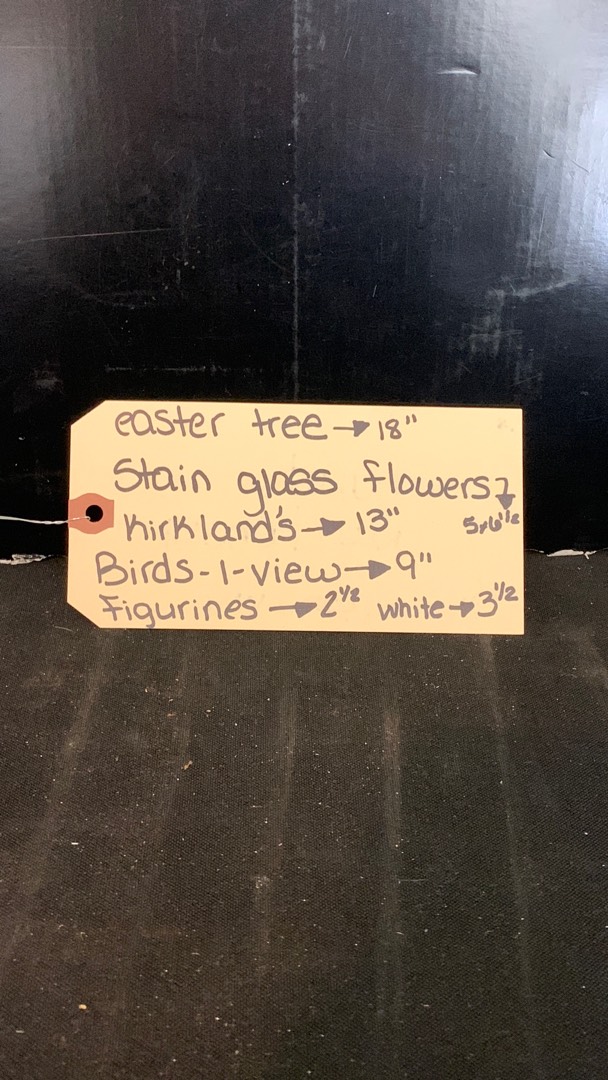 easter tree → 18"
Stain glass flowers ↴
Kirkland's → 13" 5x6 1/2
Birds-1-view → 9"
Figurines → 2 1/2 white → 3 1/2